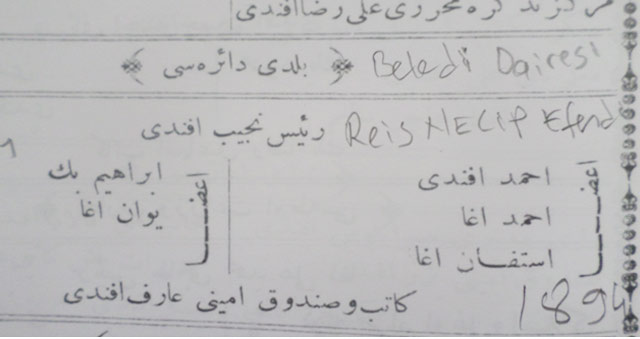 مركزند كره محررى على رضا افندى
﴿ بلدى دائره سى ﴾ Beledi Dairesi
رئيس نجيب افندى Reis NECİP Efendi
اعضا
احمد افندى
احمد اغا
استفان اغا
اعضا
ابراهيم بك
يوان اغا
كاتب و صندوق امينى عارف افندى
1894